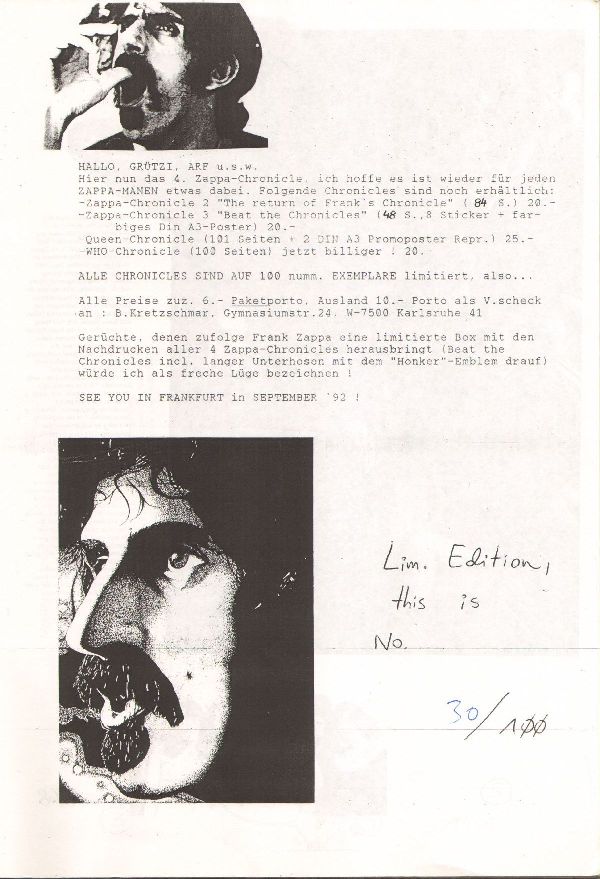 HALLO, GRÜTZI, ARF u.s.w.
Hier nun das 4. Zappa-Chronicle, ich hoffe es ist wieder für jeden
ZAPPA-MANEN etwas dabei. Folgende Chronicles sind noch erhältlich:
-Zappa-Chronicle 2 "The return of Frank's Chronicle" ( 84 S.) 20.-
-Zappa-Chronicle 3 "Beat the Chronicles" ( 48 S.,8 Sticker + far-
biges Din A3-Poster) 20.-
Queen-Chronicle (101 Seiten + 2 DIN A3 Promoposter Repr.) 25.-
-WHO-Chronicle (100 Seiten) jetzt billiger ! 20.-
ALLE CHRONICLES SIND AUF 100 numm. EXEMPLARE limitiert, also...
Alle Preise zuz. 6.- Paketporto, Ausland 10.- Porto als V.scheck
an : B.Kretzschmar, Gymnasiumstr.24, W-7500 Karlsruhe 41
Gerüchte, denen zufolge Frank Zappa eine limitierte Box mit den
Nachdrucken aller 4 Zappa-Chronicles herausbringt (Beat the
Chronicles incl. langer Unterhosen mit dem "Honker"-Emblem drauf)
würde ich als freche Lüge bezeichnen !
SEE YOU IN FRANKFURT in SEPTEMBER '92 !
Lim. Edition,
this is
No.
30/100